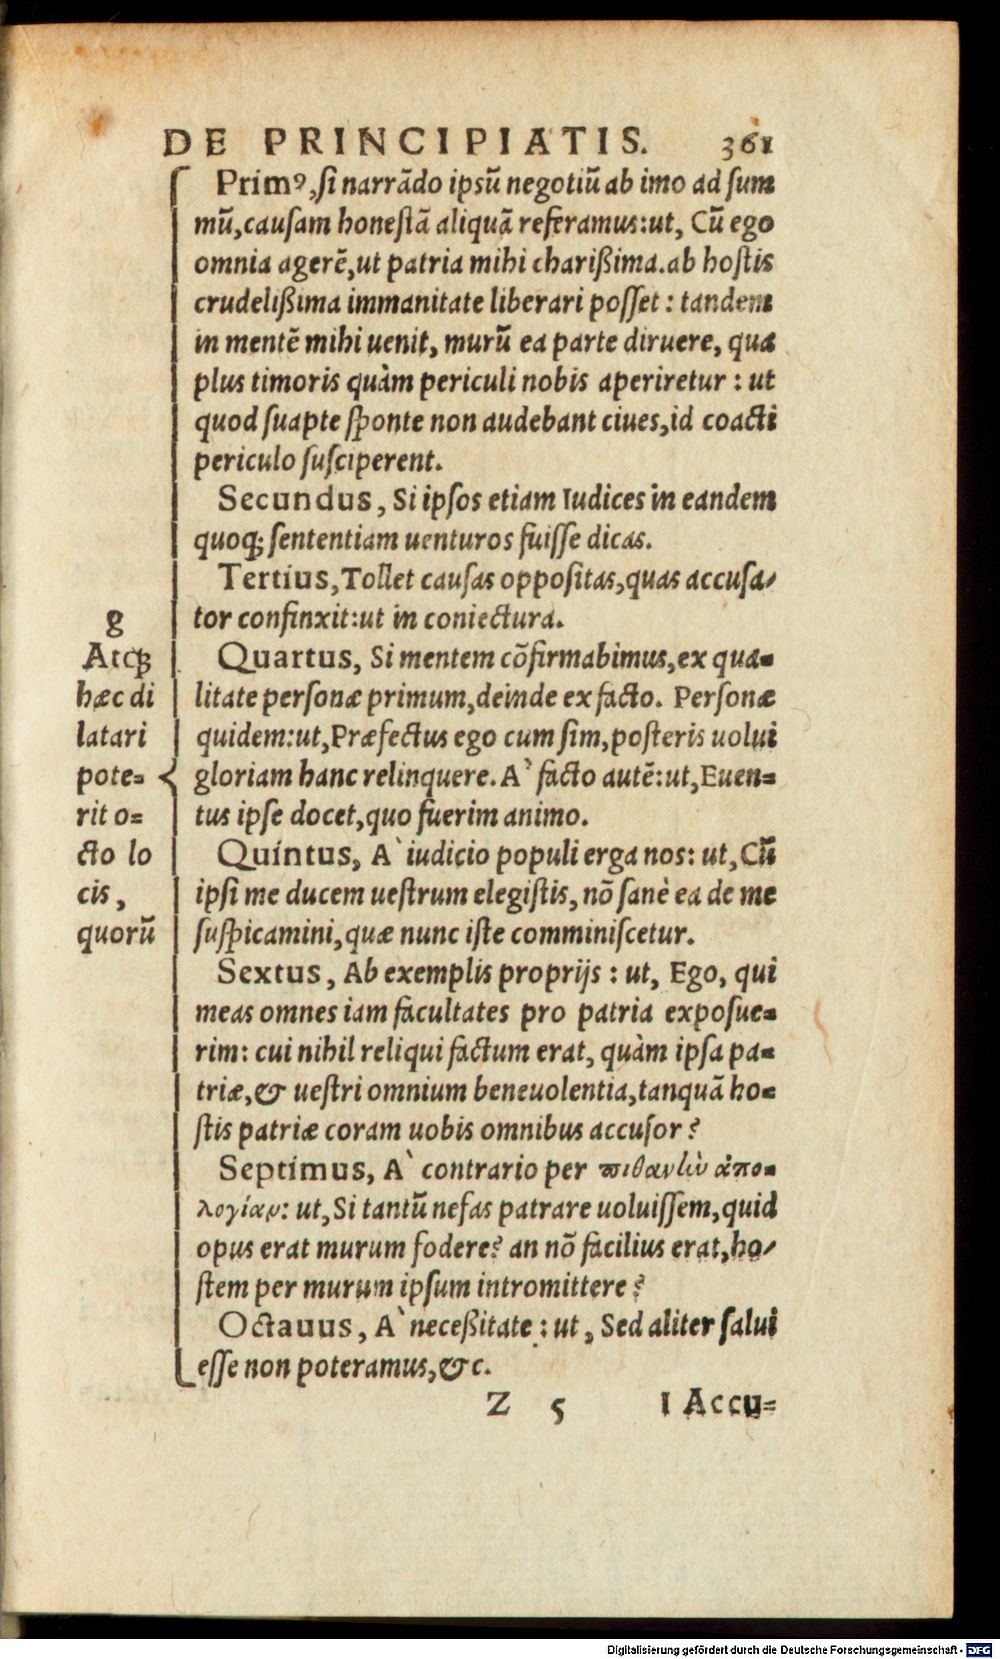 DE PRINCIPIATIS. 361
Primꝰ, si narrãdo ipsũ negotiũ ab imo ad sum
mũ, causam honestã aliquã referamus: ut, Cũ ego
omnia agerẽ, ut patria mihi charißima. ab hostis
crudelißima immanitate liberari posset: tandem
in mentẽ mihi uenit, murũ ea parte diruere, qua
plus timoris quàm periculi nobis aperiretur: ut
quod suapte sponte non audebant ciues, id coacti
periculo susciperent.
Secundus, Si ipsos etiam Iudices in eandem
quoq; sententiam uenturos fuisse dicas.
Tertius, Tollet causas oppositas, quas accusa-
tor confinxit: ut in coniectura.
g
Atq;
hæc di
latari
pote=
rit o=
cto lo
cis,
quorũ
Quartus, Si mentem cõfirmabimus, ex qua=
litate personæ primum, deinde ex facto. Personæ
quidem: ut, Præfectus ego cum sim, posteris uolui
gloriam hanc relinquere. A` facto autẽ: ut, Euen=
tus ipse docet, quo fuerim animo.
Quintus, A` iudicio populi erga nos: ut, Cũ
ipsi me ducem uestrum elegistis, nõ sanè ea de me
suspicamini, quæ nunc iste comminiscetur.
Sextus, Ab exemplis proprijs: ut, Ego, qui
meas omnes iam facultates pro patria exposue=
rim: cui nihil reliqui factum erat, quàm ipsa pa=
triæ, & uestri omnium beneuolentia, tanquã ho=
stis patriæ coram uobis omnibus accusor?
Septimus, A` contrario per πιθανὴν ἀπο=
λογίαν: ut, Si tantũ nefas patrare uoluissem, quid
opus erat murum fodere? an nõ facilius erat, ho-
stem per murum ipsum intromittere?
Octauus, A` neceßitate: ut, Sed aliter salui
esse non poteramus, &c.
Z 5 1 Accu=
Digitalisierung gefördert durch die Deutsche Forschungsgemeinschaft - DFG